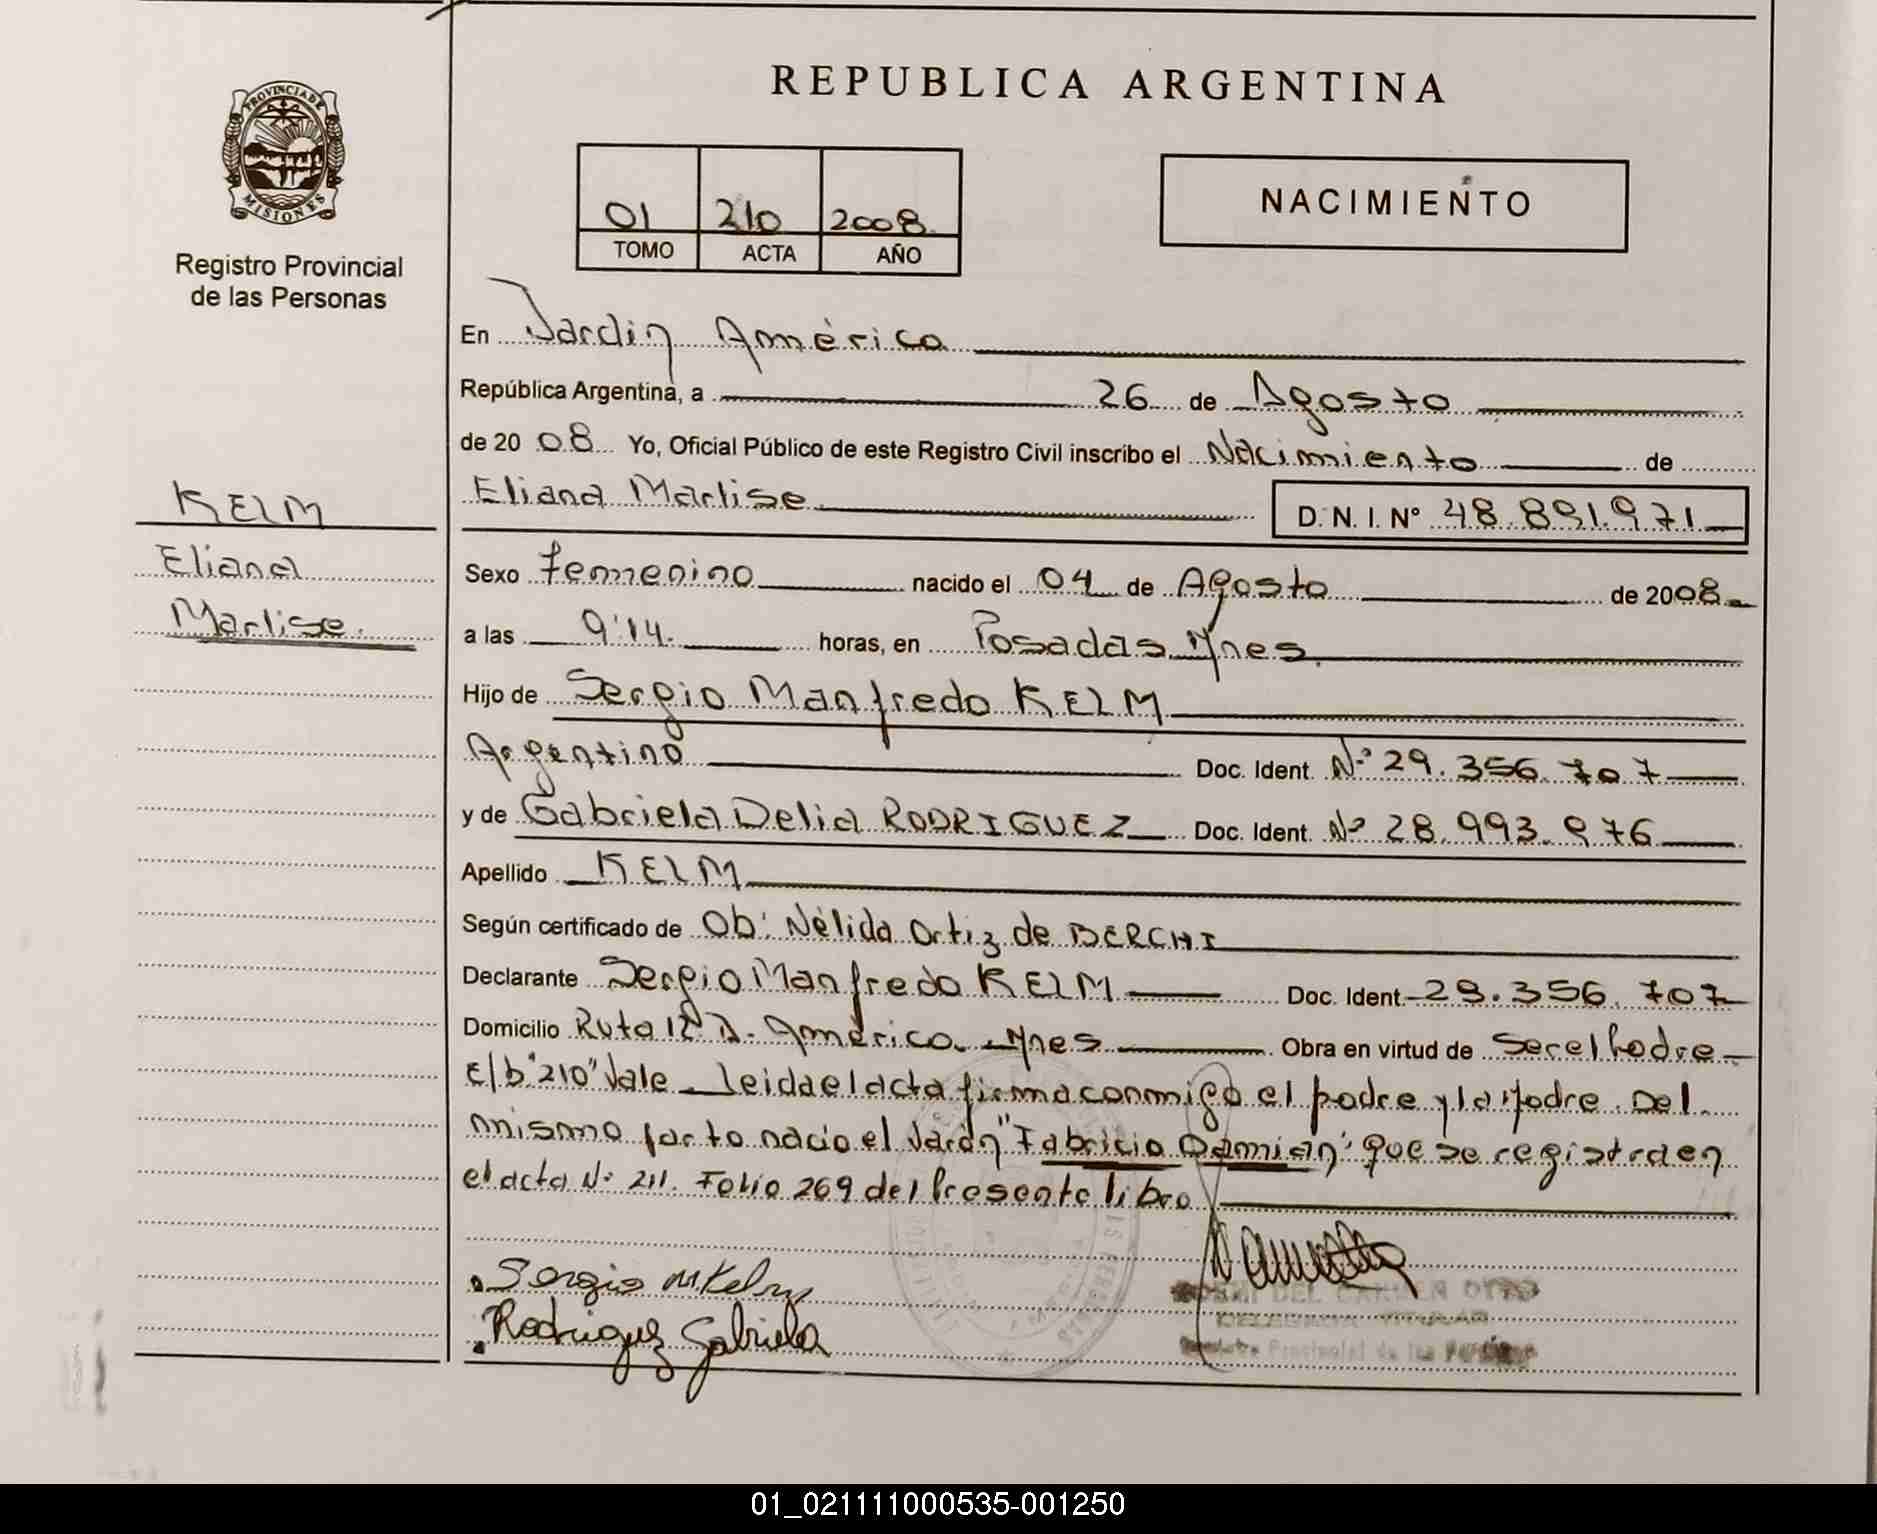 REPUBLICA ARGENTINA
PROVINCIA DE
MISIONES
Registro Provincial
de las Personas
01 210 2008
TOMO ACTA AÑO
NACIMIENTO
En Jardin América
República Argentina, a 26 de Agosto
de 2008 Yo, Oficial Público de este Registro Civil inscribo el Nacimiento de
Eliana Marlise D. N. I. Nº 48.891.971
KELM
Eliana
Marlise.
Sexo femenino nacido el 04 de Agosto de 2008
a las 9:14. horas, en Posadas Mnes.
Hijo de Sergio Manfredo KELM
Argentino Doc. Ident. Nº 29.356.707
y de Gabriela Delia RODRIGUEZ Doc. Ident. Nº 28.993.976
Apellido KELM
Según certificado de Ob: Nélida Ortiz de BERCHI
Declarante Sergio Manfredo KELM Doc. Ident 29.356.707
Domicilio Ruta 12 J. América. Mnes Obra en virtud de Ser el Padre
E/b "210" Vale _ Leida el acta firma conmigo el padre y la Madre. Del
mismo parto nacio el Varón "Fabricio Damian" que se registra en
el acta Nº 211. Folio 269 del Presente libro
Sergio M. Kelm
Rodriguez Gabriela
DEL CARMEN
DELEGADA TITULAR
Registro Provincial de las Personas
01_021111000535-001250